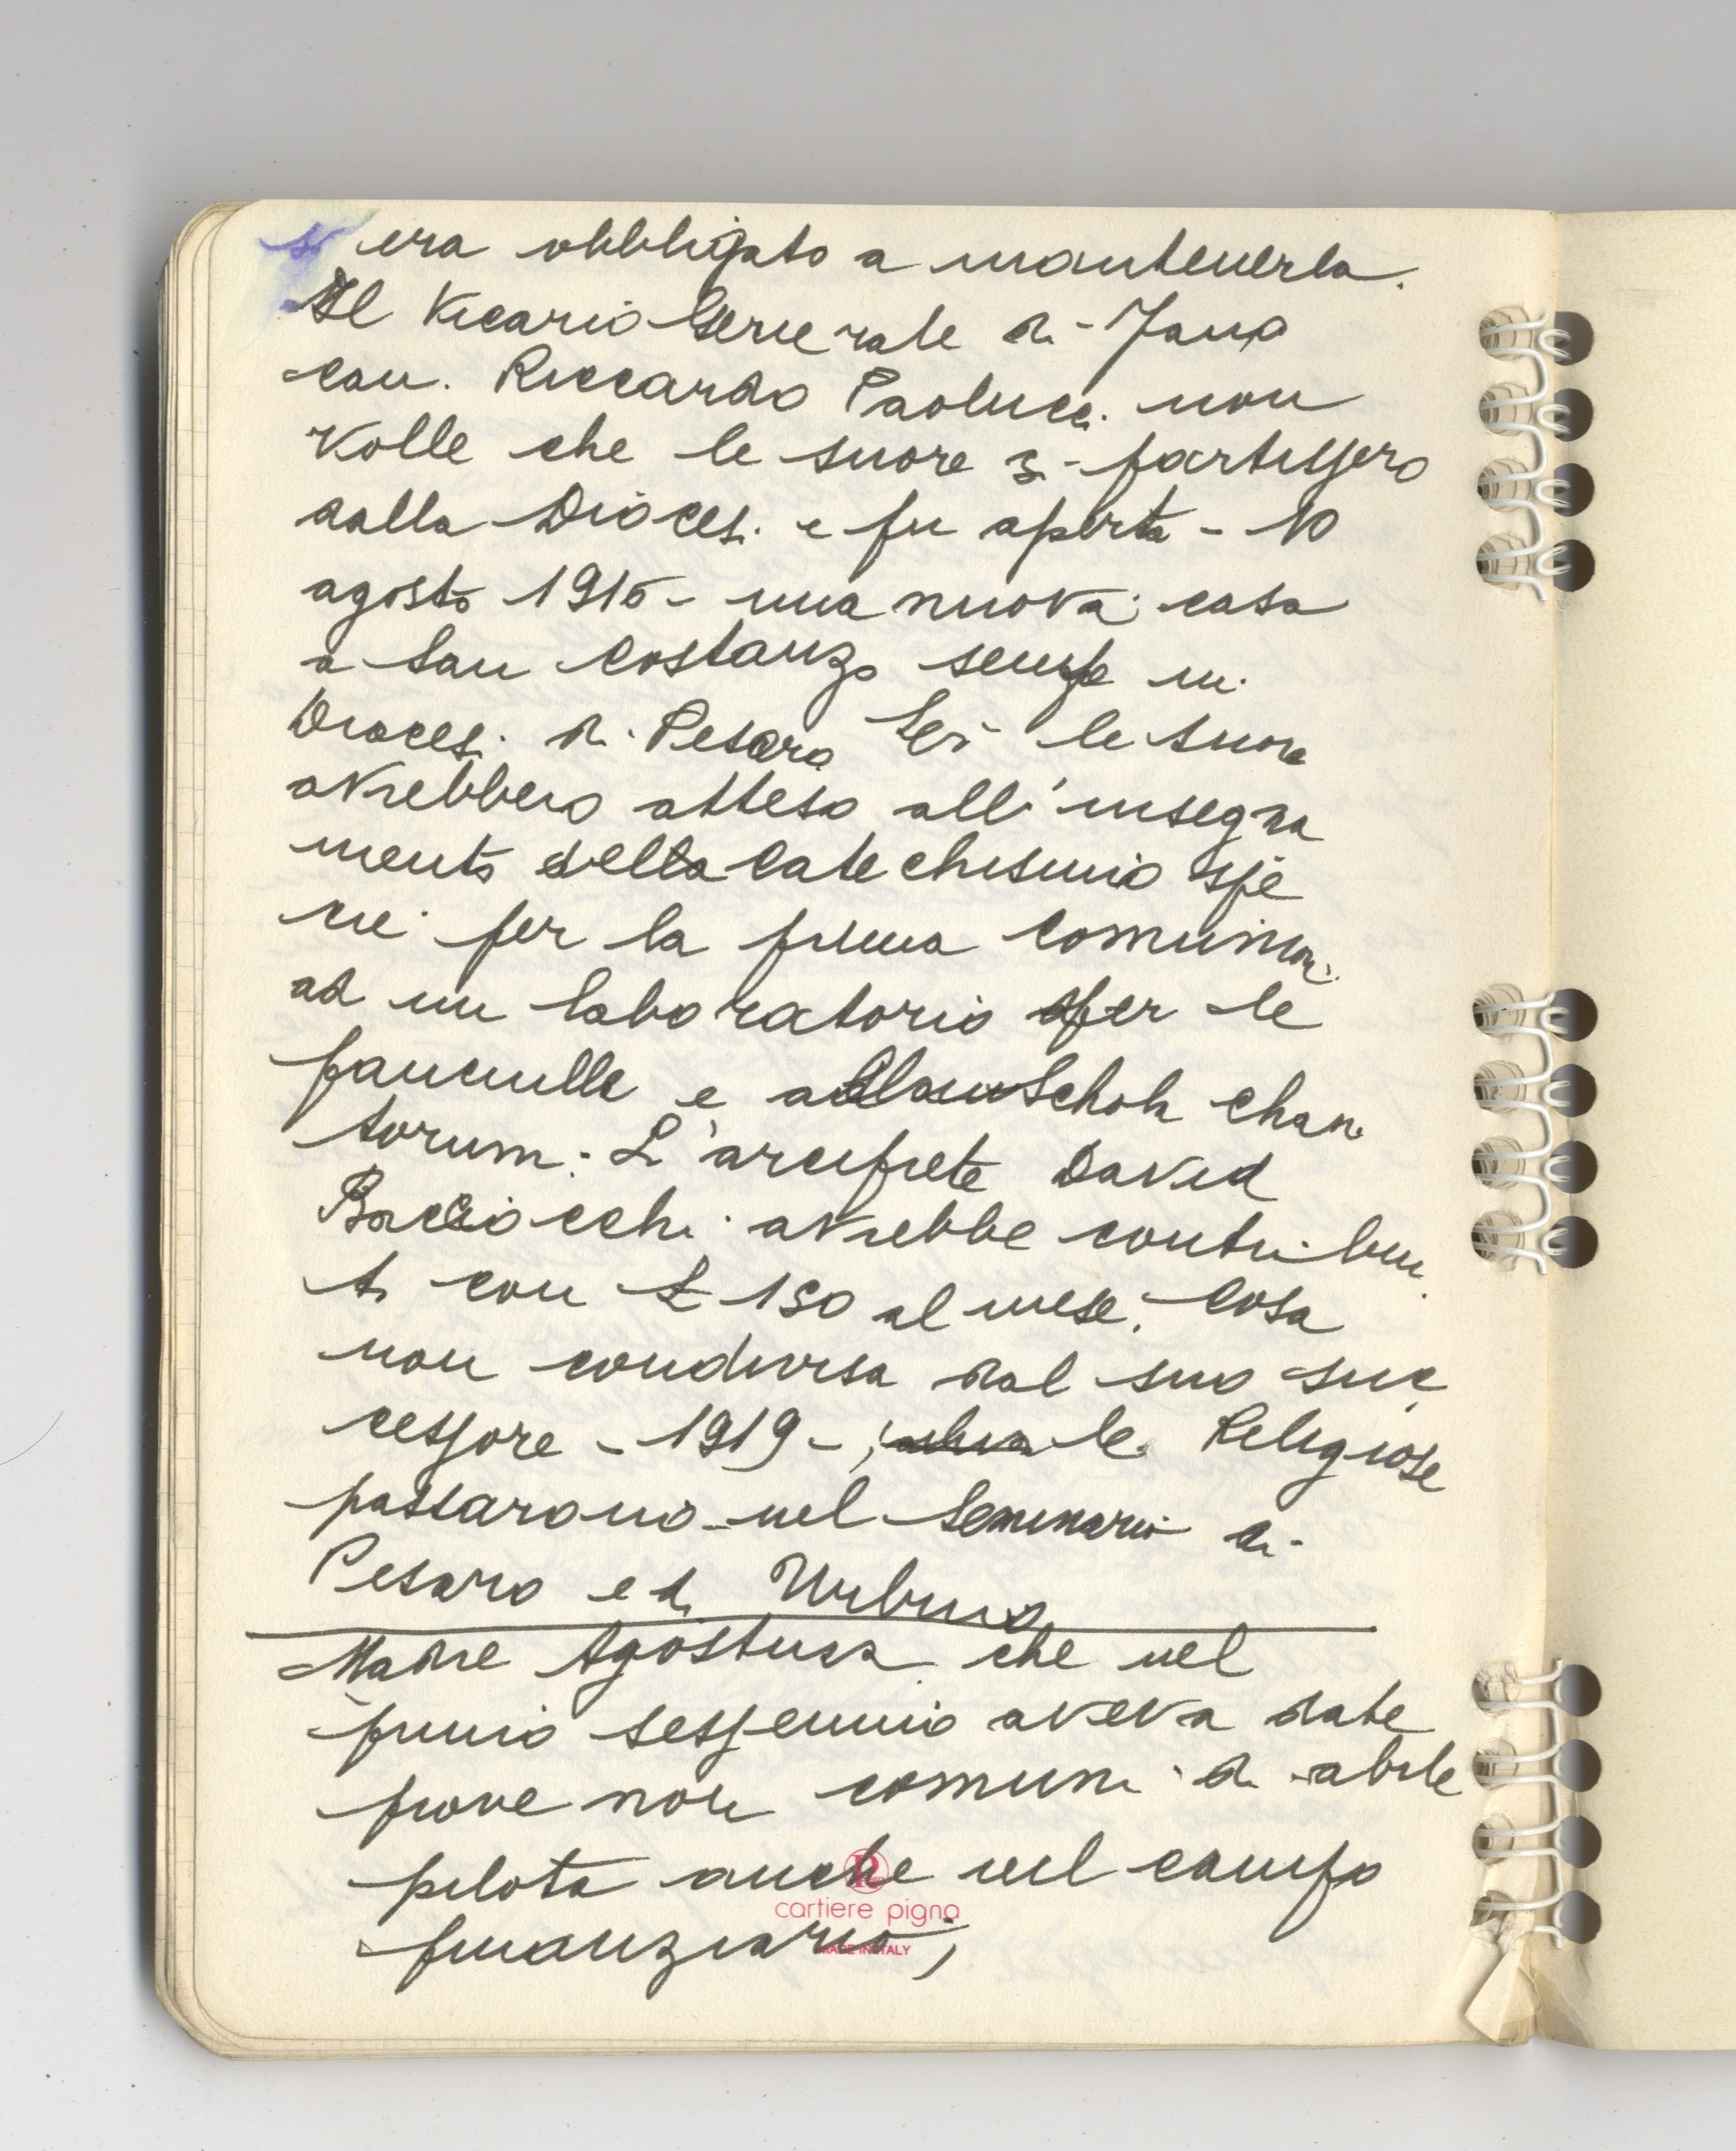 si era obbligato a mantenerla.
Il Vicario Generale di Fano
can. Riccardo Paolucci non
volle che le suore si partissero
dalla Diocesi e fu aperta - 10
agosto 1915 - una nuova casa
a San Costanzo sempre in
Diocesi di Pesaro Lì le suore
avrebbero atteso all'insegna
mento della catechismo spe
cie per la prima comunione
ad un laboratorio per le
fanciulle e alla Schola Chan
torum. L'arciprete David
Bacciocchi avrebbe contribui
to con £ 150 al mese. Cosa
non condivisa dal suo suc
cessore - 1919 -, le Religiose
passarono nel Seminario di
Pesaro e di Urbino
Madre Agostina che nel
primo sessennio aveva date
prove non comuni di abile
pilota anche nel campo
finanziario,
cartiere pigna
MADE IN ITALY